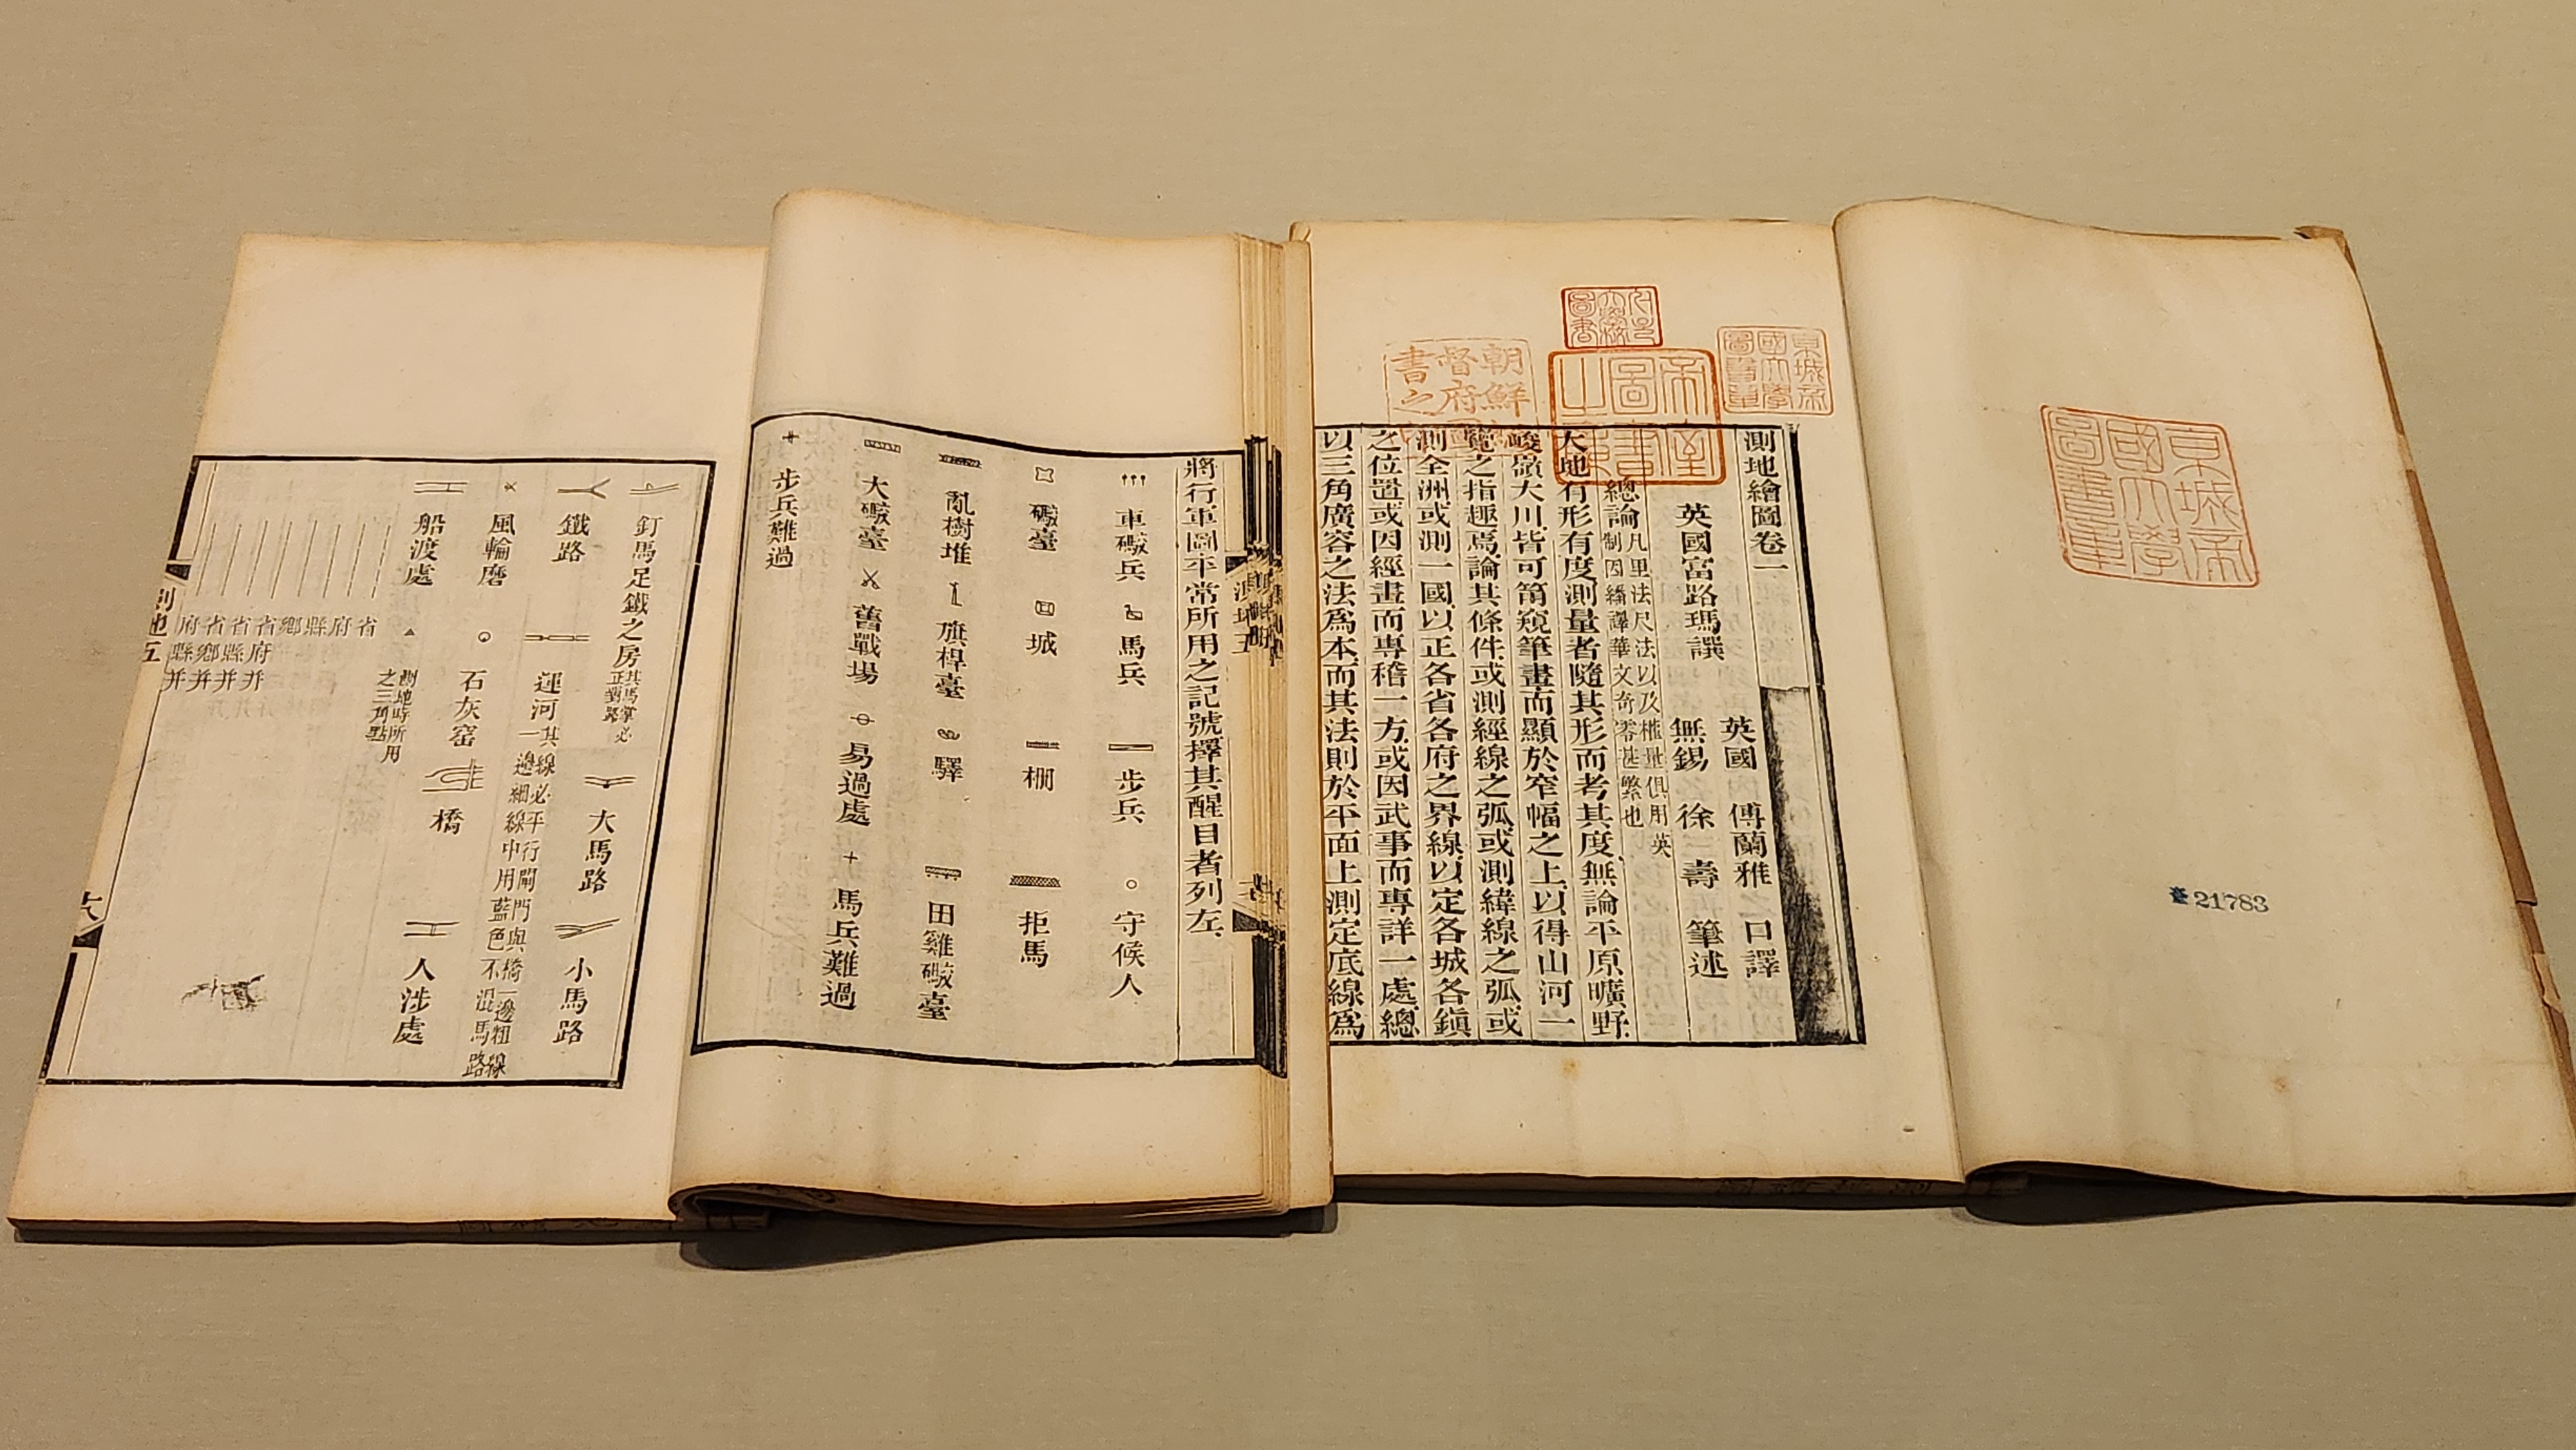 京城帝國大學圖書章
21783
京城帝國大學圖書章
帝室圖書之章
朝鮮總督府圖書之印
測地繪圖卷一
英國 傅蘭雅 口譯
英國富路瑪譔
無錫 徐壽 筆述
總論
凡里法尺法以及權量俱用英
制因繙譯華文奇零甚繁也
大地有形有度測量者隨其形而考其度無論平原曠野
峻嶺大川皆可筩窺筆畫而顯於窄幅之上以得山河一
覽之指趣焉論其條件或測經線之弧或測緯線之弧或
測全洲或測一國以正各省各府之界線以定各城各鎭
之位置或因經畫而專稽一方或因武事而專詳一處總
以三角廣容之法爲本而其法則於平面上測定底線爲
將行軍圖平常所用之記號擇其醒目者列左
車礮兵 馬兵 步兵 守候人
礮臺 城 柵 拒馬
亂樹堆 旗桿臺 驛 田雞礮臺
大礮臺 舊戰場 易過處 馬兵難過
步兵難過
釘馬足鐵之房
其馬掌必
正對路
大馬路 小馬路
鐵路
運河
其線必平行閘門與橋一邊粗線
一邊細線中用藍色不沿馬路
風輪磨 石灰窑 橋 人涉處
船渡處
測地時所用
之三角點
省
府
縣
鄉
省府并
省縣并
省鄉并
府縣并
測地五
六